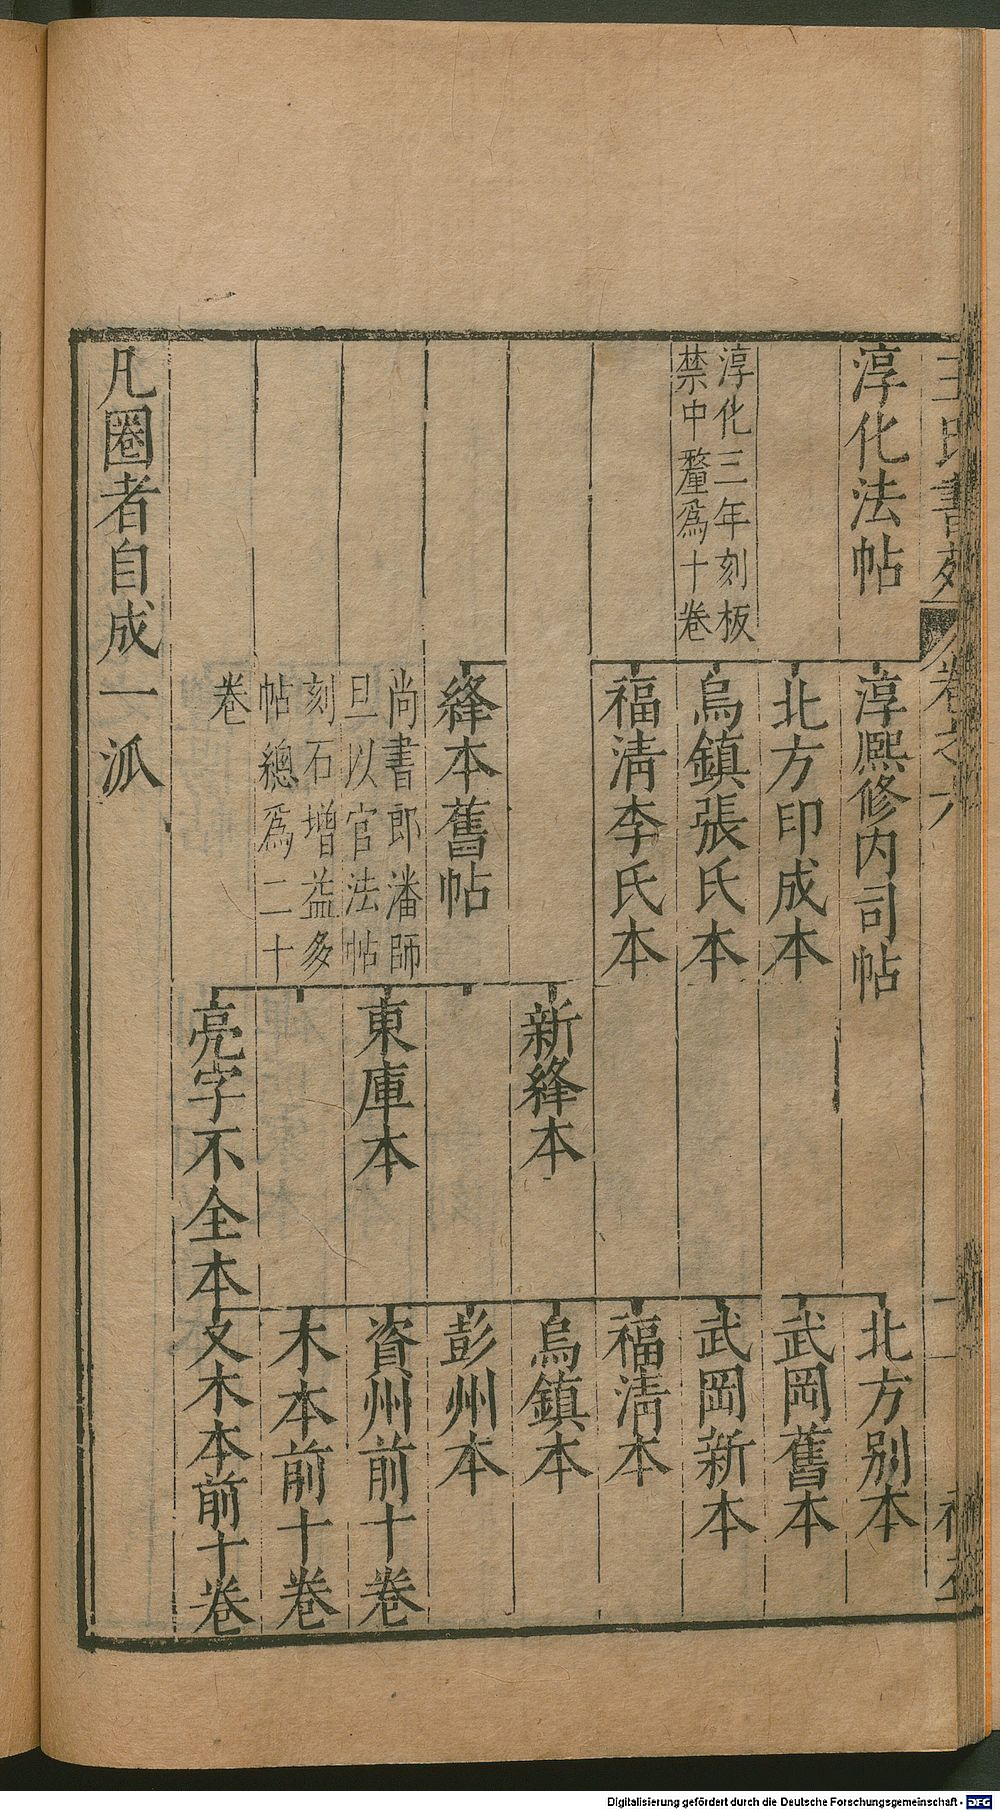 王氏書苑
卷之六
淳化法帖
淳化三年刻板
禁中釐爲十卷
淳熙修内司帖
北方印成本
烏鎮張氏本
福清李氏本
絳本舊帖
尚書郎潘師
旦以官法帖
刻石增益多
帖總爲二十
卷
新絳本
東庫本
亮字不全本
北方别本
武岡舊本
武岡新本
福清本
烏鎮本
彭州本
資州前十卷
木本前十卷
又木本前十卷
凡圈者自成一派
Digitalisierung gefördert durch die Deutsche Forschungsgemeinschaft - DFG